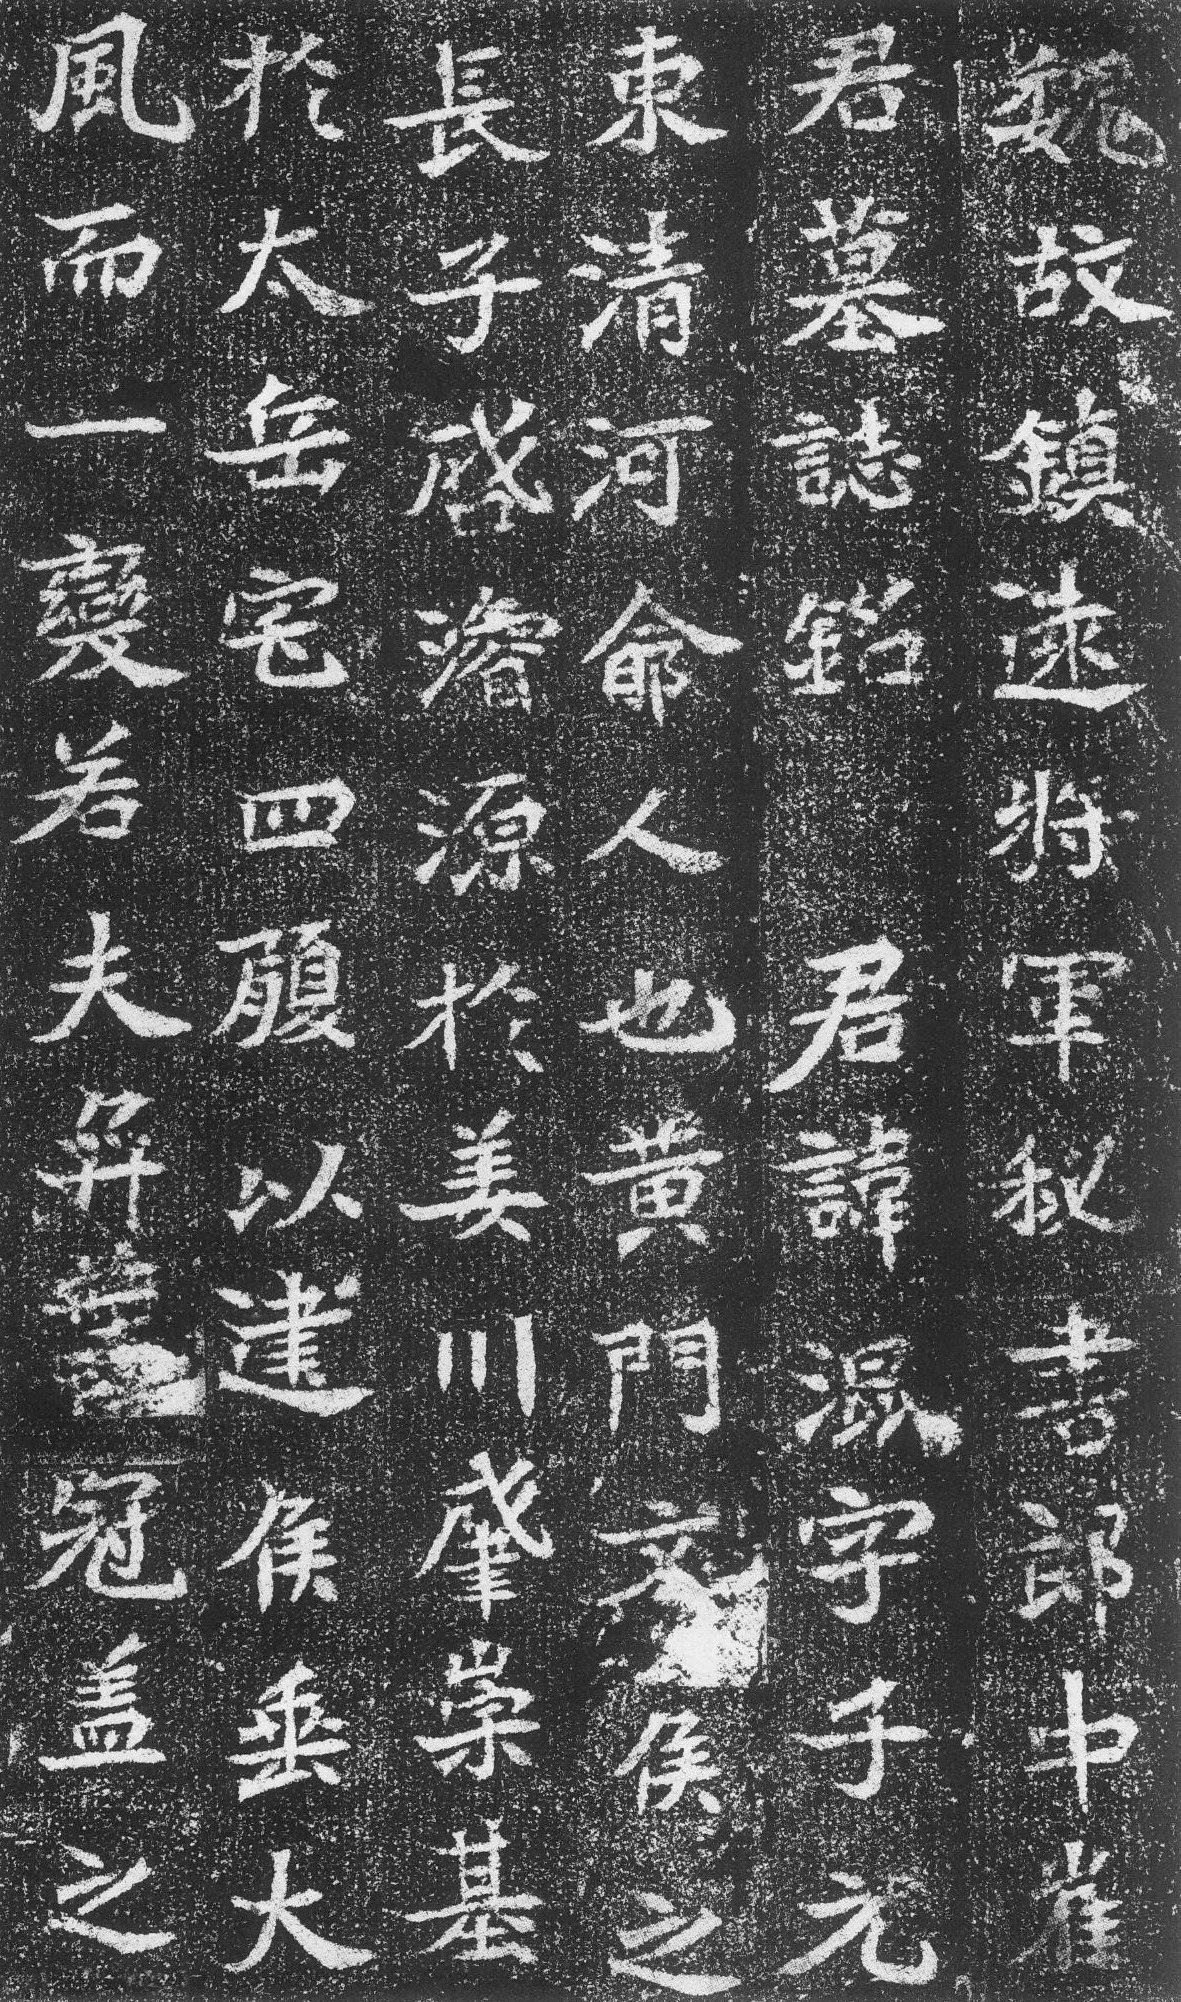 魏故鎮遠將軍秘書郎中崔
君墓誌銘君諱混字子元
東清河鄃人也黃門文侯之
長子啓濬源於姜川肇崇基
於太岳宅四履以建侯垂大
風而一變若夫弈葉冠盖之